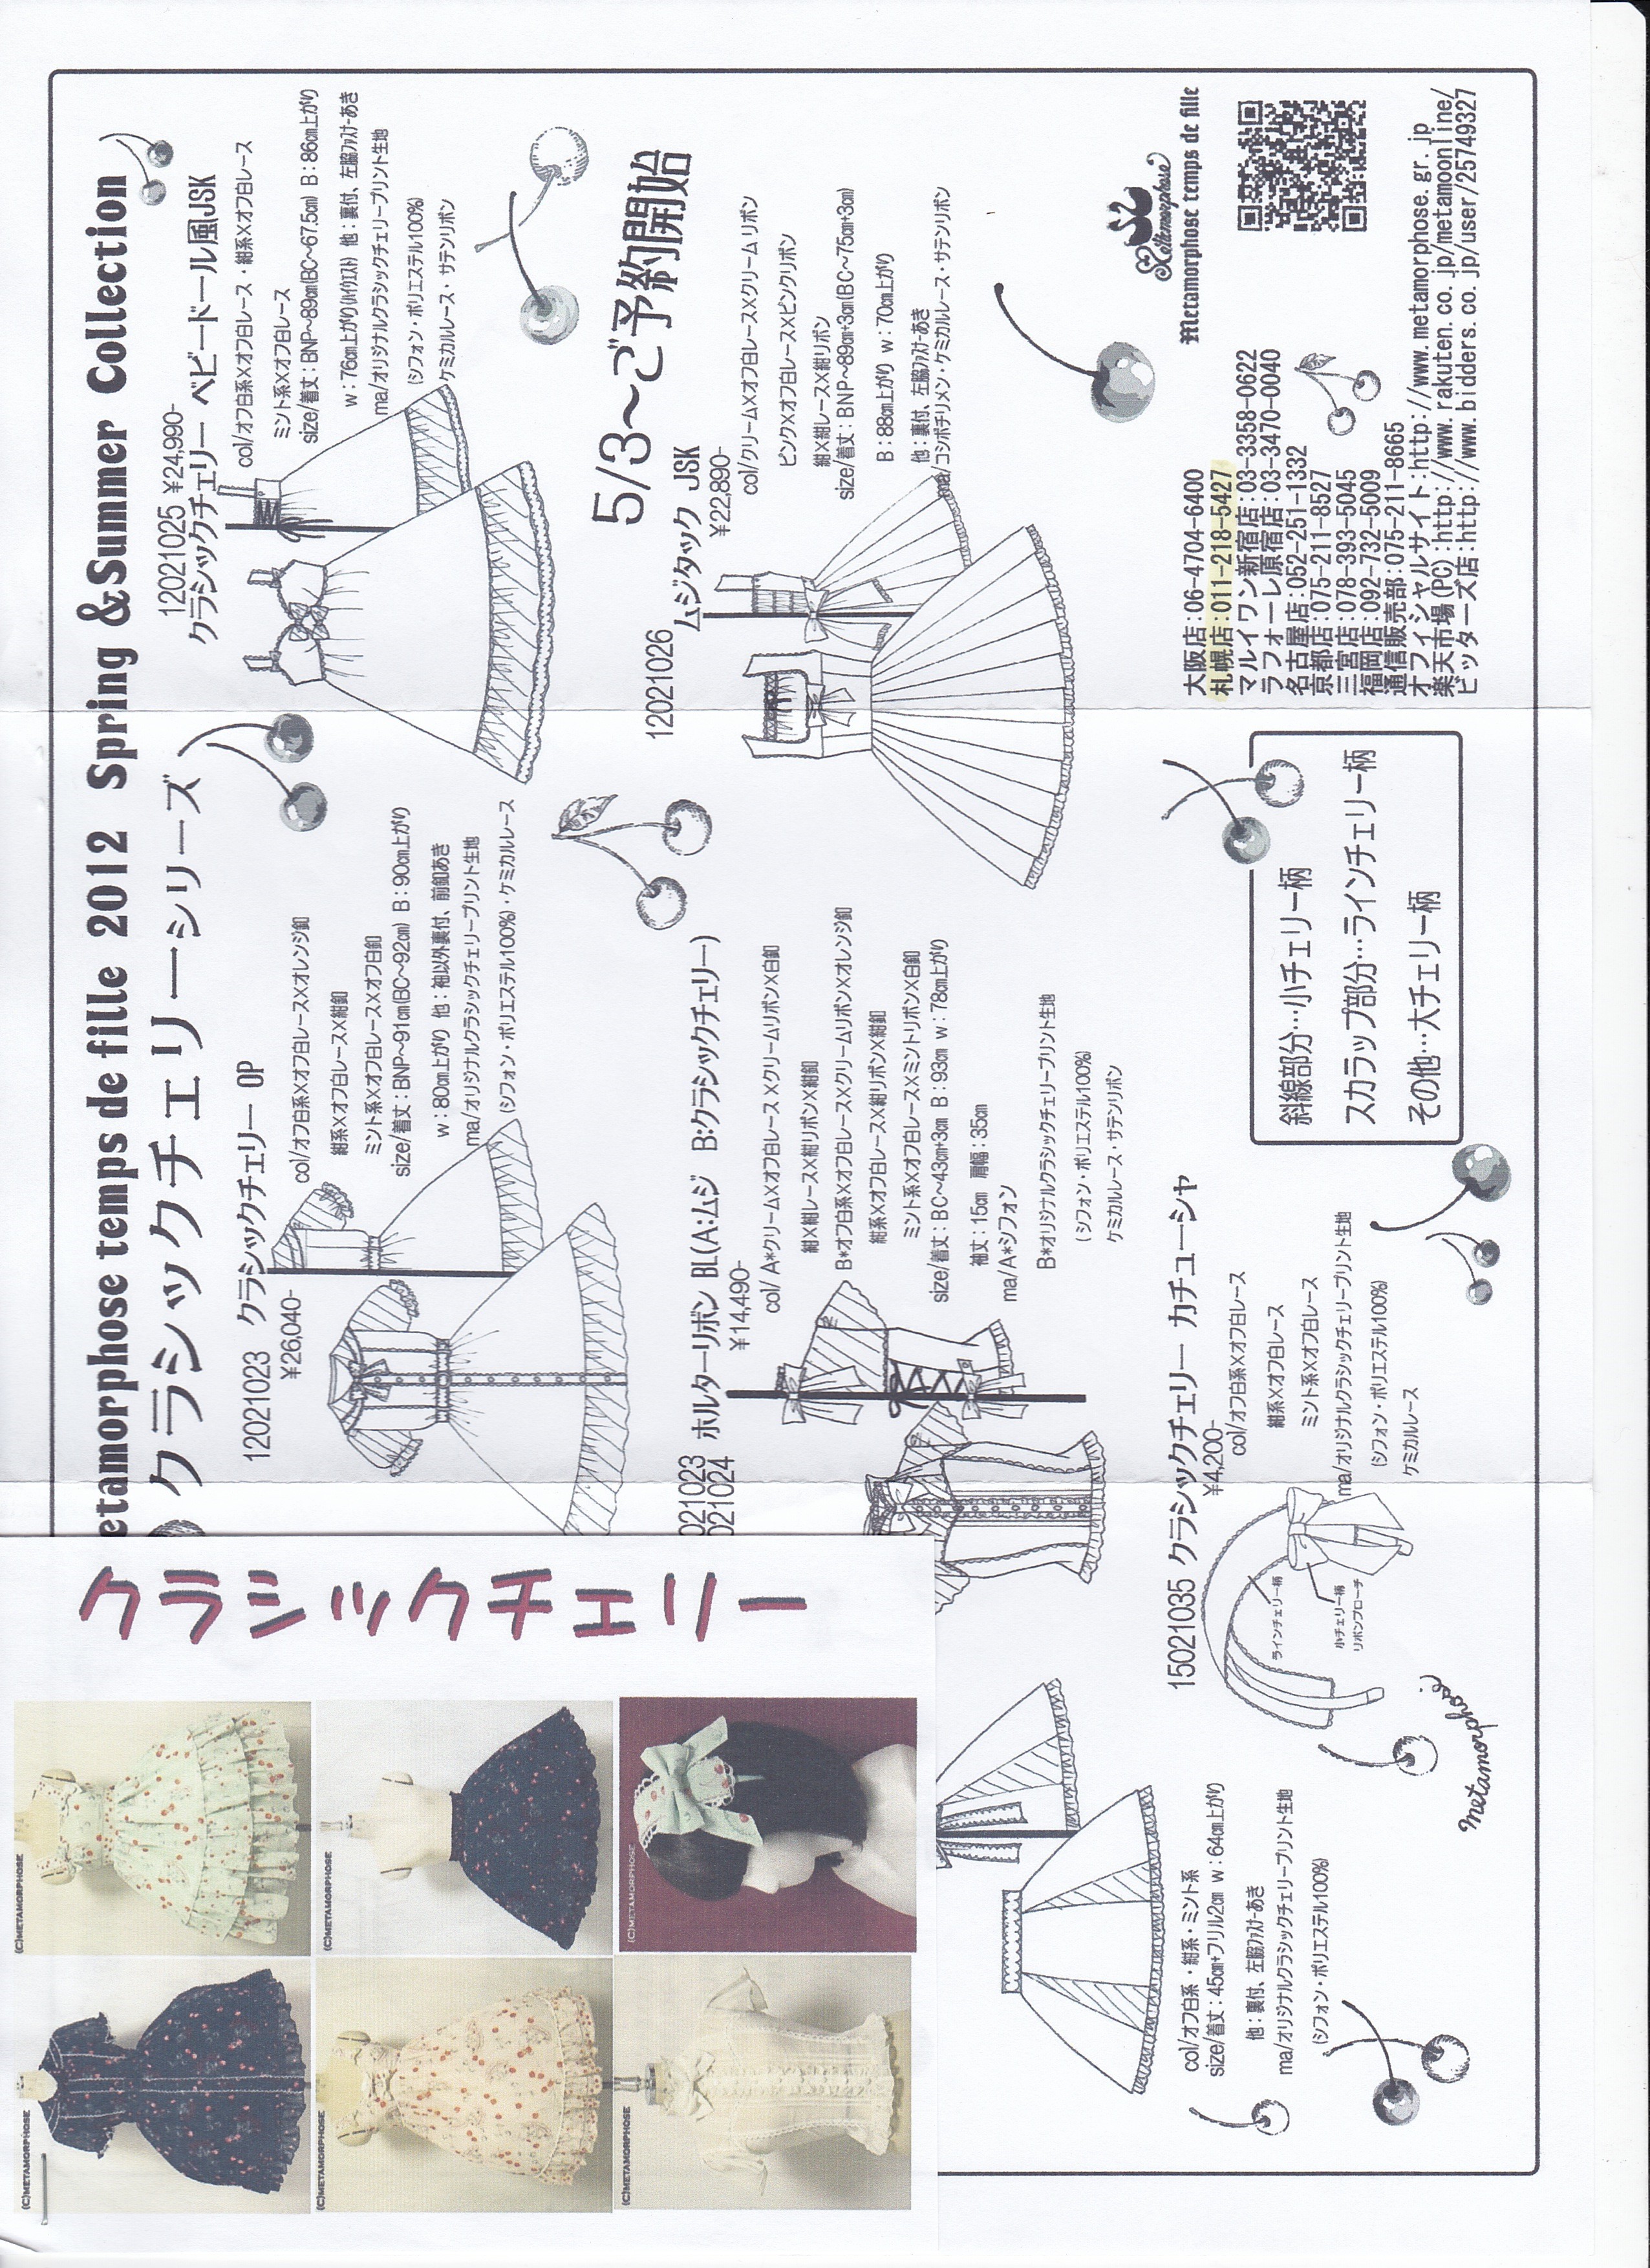 etamorphose temps de fille 2012 Spring &Summer Collection
クラシックチェリーシリーズ
12021023 クラシックチェリー OP
¥26,040-
col/オフ白系×オフ白レース×オレンジ釦
紺系×オフ白レース×紺釦
ミント系×オフ白レース×オフ白釦
size/着丈:BNP~91cm(BC~92cm) B:90cm上がり
w:80cm上がり 他:袖以外裏付、前釦あき
ma/オリジナルクラシックチェリープリント生地
(シフォン・ポリエステル100%)・ケミカルレース
12021025 ¥24,990-
クラシックチェリー ベビードール風JSK
col/オフ白系×オフ白レース・紺系×オフ白レース
ミント系×オフ白レース
size/着丈:BNP~89cm(BC~67.5cm) B:86cm上がり
w:76cm上がり(ハイウエスト) 他:裏付、左脇ファスナーあき
ma/オリジナルクラシックチェリープリント生地
(シフォン・ポリエステル100%)
ケミカルレース・サテンリボン
5/3~ご予約開始
021023
021024
ホルターリボン BL(A:ムジ B:クラシックチェリー)
¥14,490-
col/A*クリーム×オフ白レース×クリームリボン×白釦
紺×紺レース×紺リボン×紺釦
B*オフ白系×オフ白レース×クリームリボン×オレンジ釦
紺系×オフ白レース×紺リボン×紺釦
ミント系×オフ白レース×ミントリボン×白釦
size/着丈:BC~43cm+3cm B:93cm w:78cm上がり
袖丈:15cm 肩幅:35cm
ma/A*シフォン
B*オリジナルクラシックチェリープリント生地
(シフォン・ポリエステル100%)
ケミカルレース・サテンリボン
12021026 ムジタック JSK
¥22,890-
col/クリーム×オフ白レース×クリームリボン
ピンク×オフ白レース×ピンクリボン
紺×紺レース×紺リボン
size/着丈:BNP~89cm+3cm(BC~75cm+3cm)
B:88cm上がり w:70cm上がり
他:裏付、左脇ファスナーあき
ma/コシボチリメン・ケミカルレース・サテンリボン
col/オフ白系・紺系・ミント系
size/着丈:45cm+フリル2cm w:64cm上がり
他:裏付、左脇ファスナーあき
ma/オリジナルクラシックチェリープリント生地
(シフォン・ポリエステル100%)
15021035 クラシックチェリー カチューシャ
¥4,200-
col/オフ白系×オフ白レース
紺系×オフ白レース
ミント系×オフ白レース
ma/オリジナルクラシックチェリープリント生地
(シフォン・ポリエステル100%)
ケミカルレース
ラインチェリー柄
小チェリー柄
リボンブローチ
斜線部分…小チェリー柄
スカラップ部分…ラインチェリー柄
その他…大チェリー柄
大阪店:06-4704-6400
札幌店:011-218-5427
マルイワン新宿店:03-3358-0622
ラフォーレ原宿店:03-3470-0040
名古屋店:052-251-1332
京都店:075-211-8527
三宮店:078-393-5045
福岡店:092-732-5009
通信販売部:075-211-8665
オフィシャルサイト:http://www.metamorphose.gr.jp
楽天市場(PC):http://www.rakuten.co.jp/metamoonline/
ビッターズ店:http://www.bidders.co.jp/user/25749327
Metamorphose
Metamorphose temps de fille
metamorpho
クラシックチェリー
(C)METAMORPHOSE
(C)METAMORPHOSE
(C)METAMORPHOSE
(C)METAMORPHOSE
(C)METAMORPHOSE
(C)METAMORPHOSE